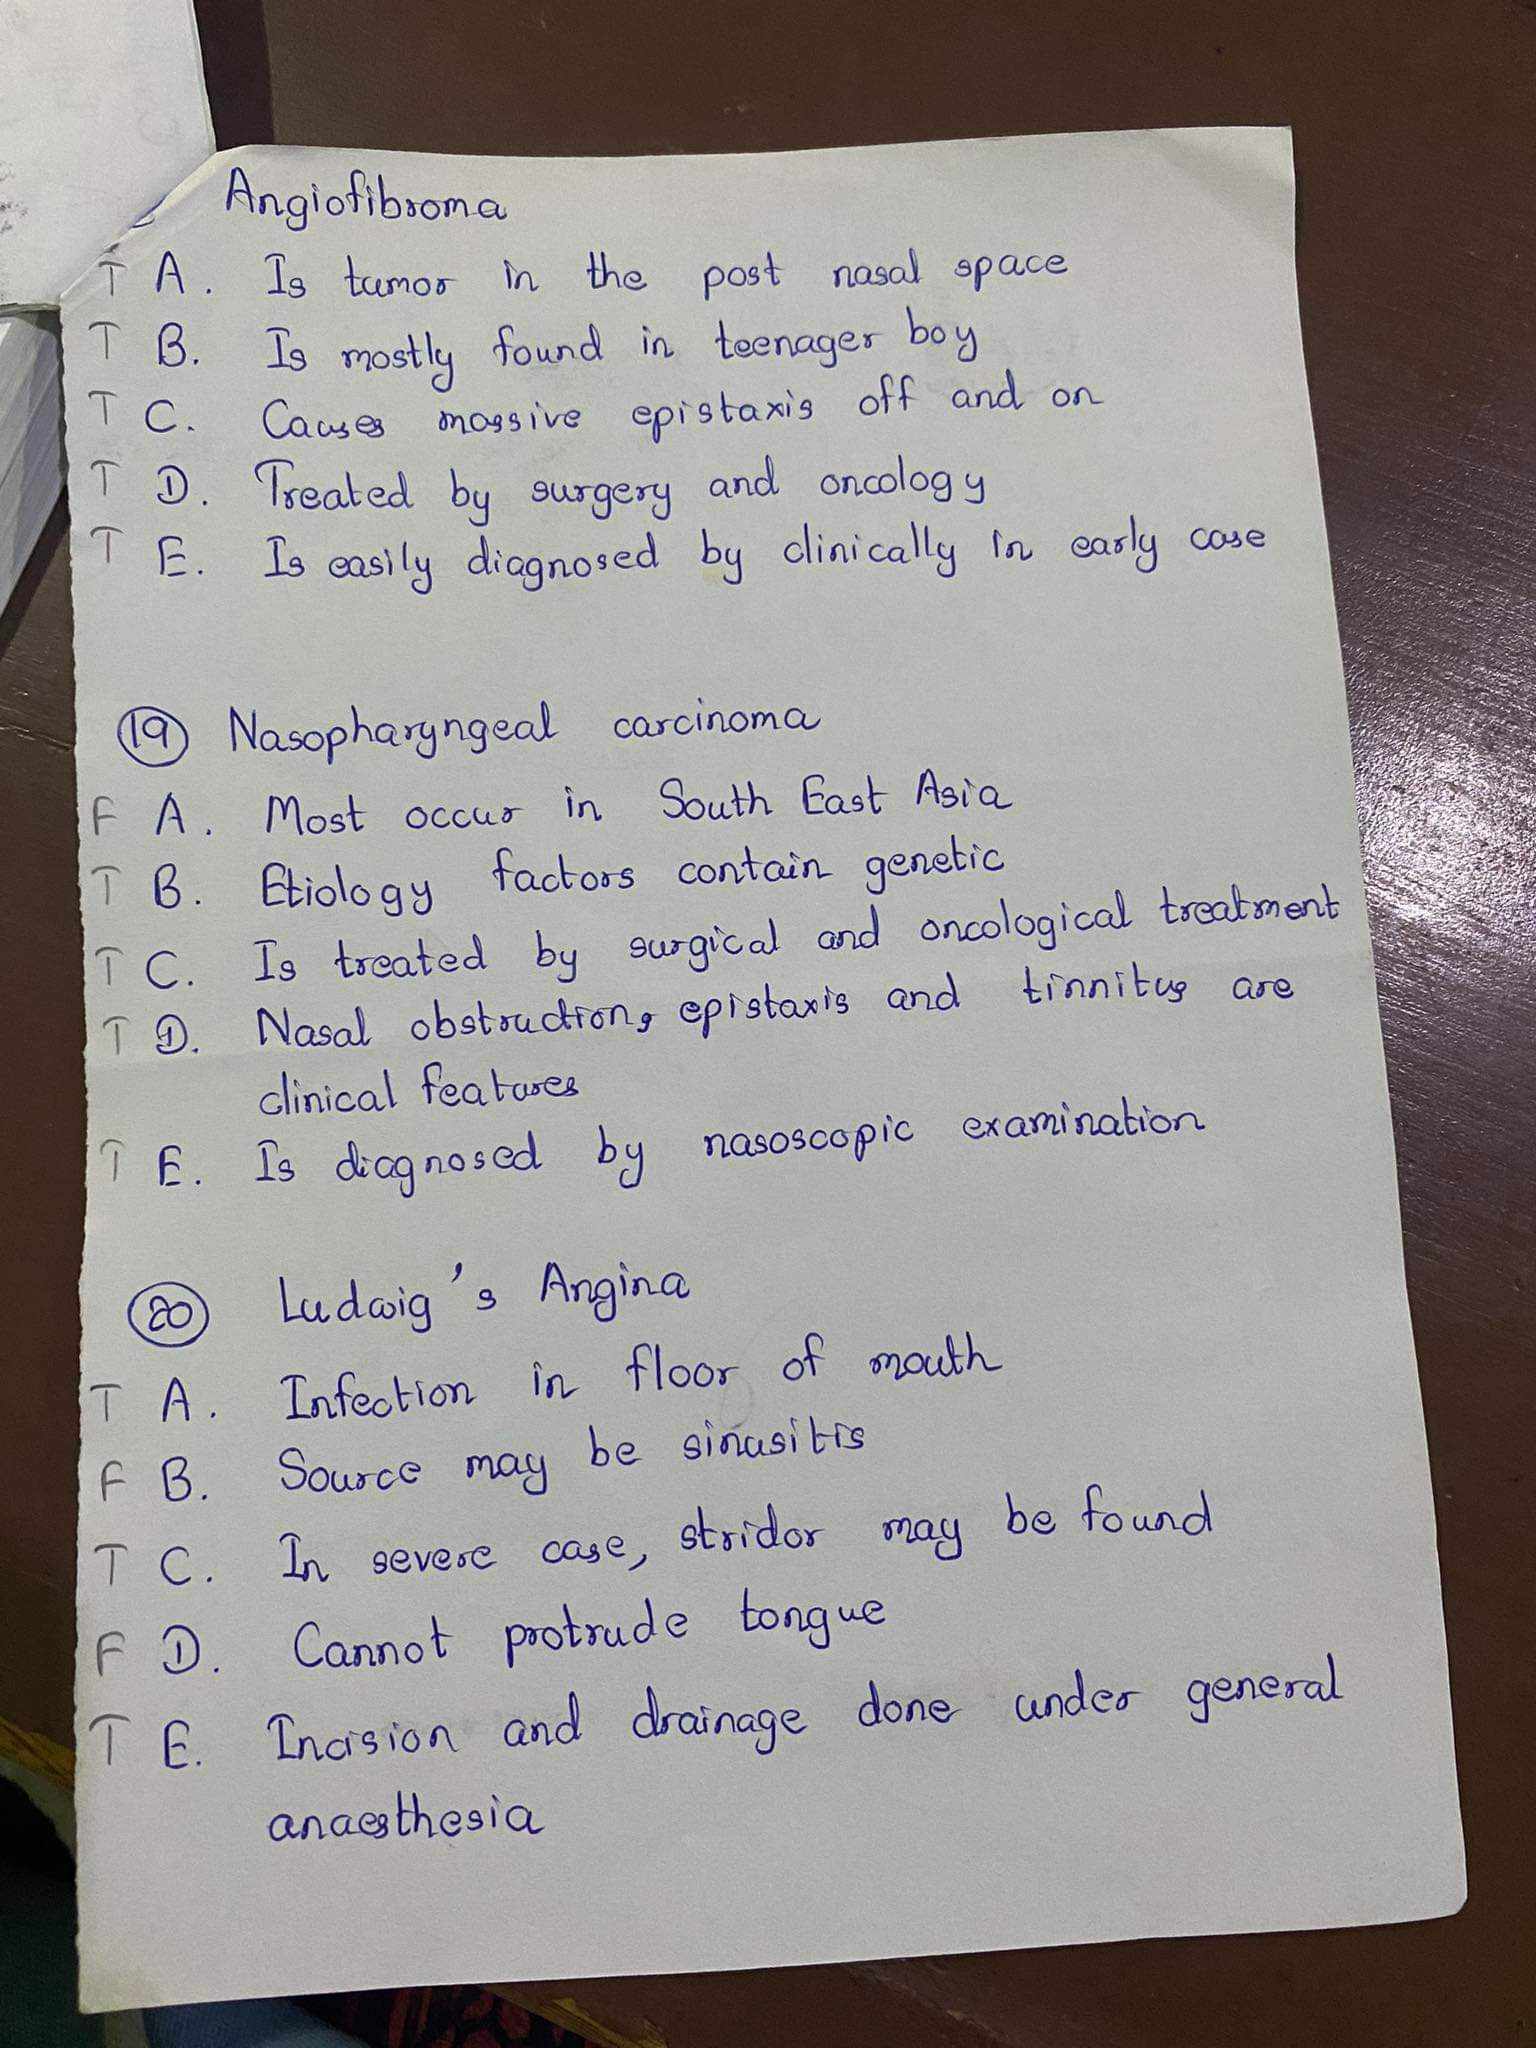 Angiofibroma
T A. Is tumor in the post nasal space
T B. Is mostly found in teenager boy
T C. Causes massive epistaxis off and on
T D. Treated by surgery and oncology
T E. Is easily diagnosed by clinically in early case
19 Nasopharyngeal carcinoma
F A. Most occur in South East Asia
T B. Etiology factors contain genetic
T C. Is treated by surgical and oncological treatment
T D. Nasal obstruction, epistaxis and tinnitus are
clinical features
T E. Is diagnosed by nasoscopic examination
20 Ludwig's Angina
T A. Infection in floor of mouth
F B. Source may be sinusitis
T C. In severe case, stridor may be found
F D. Cannot protrude tongue
T E. Incision and drainage done under general
anaesthesia